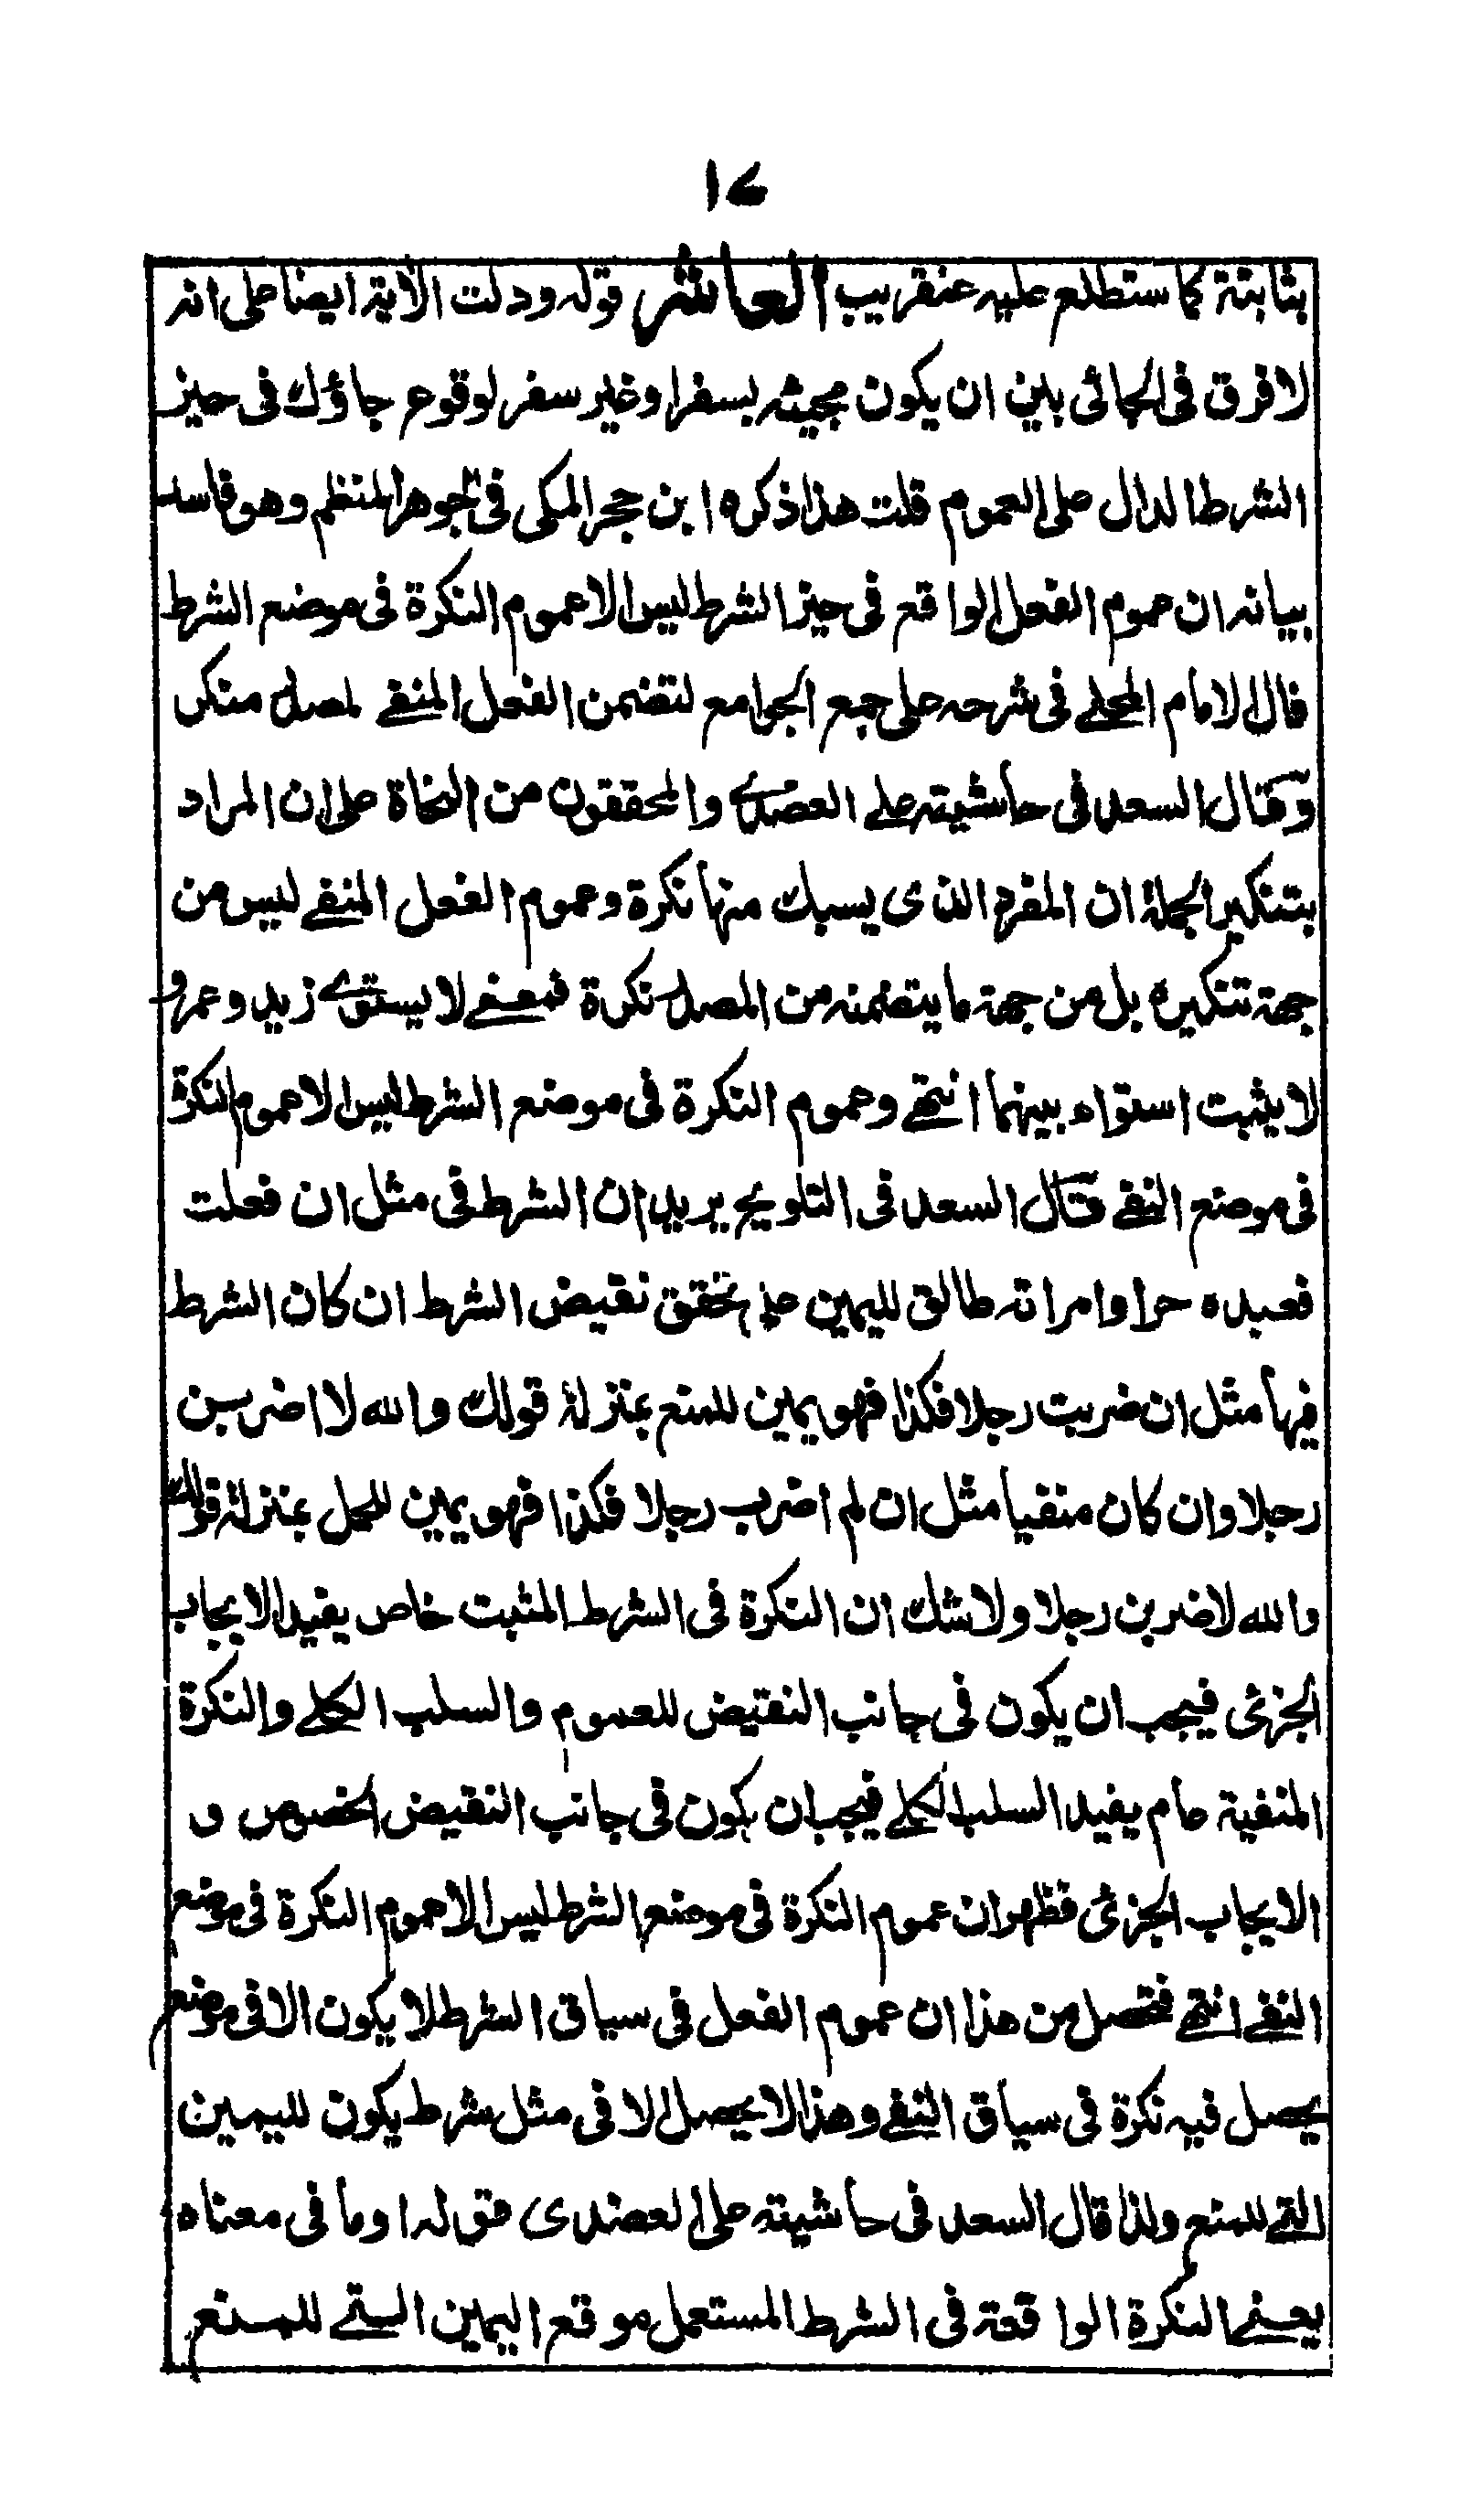 ١٤
بثابتة كما ستطلع عليه عنقريب العاشر قوله ودلت الاية ايضا على انه
لا فرق فى الجائى بين ان يكون مجيئه بسفر او غير سفر لوقوع جاؤك فى حيز
الشرط الدال على العموم قلت هذا ذكره ابن حجر المكى فى الجوهر المنظم وهو فاسد
بيانه ان عموم الفعل الواقع فى حيز الشرط ليس الا عموم النكرة فى موضع الشرط
قال الامام المحلے فى شرحه على جمع الجوامع لتضمن الفعل المنفے لمصدر منكر
وقال السعد فى حاشيته علے العضدے والمحققون من النحاة على ان المراد
بتنكير الجملة ان المفرد الذى يسبك منها نكرة وعموم الفعل المنفے ليس من
جهة تنكيره بل من جهة ما يتضمنه من المصدر نكرة فمعنے لا يستوے زيد وعمرو
لا يثبت استواء بينهما انتهے وعموم النكرة فى موضع الشرط ليس الا عموم النكرة
فى موضع النفے قال السعد فى التلويح يريد ان الشرط فى مثل ان فعلت
فعبده حر او امراته طالق لليمين على تحقق نقيض الشرط ان كان الشرط
فيها مثل ان ضربت رجلا فكذا فهو يمين للمنع بمنزلة قولك والله لا اضربن
رجلا وان كان منفيا مثل ان لم اضرب رجلا فكذا فهو يمين للحمل بمنزلة قولك
والله لاضربن رجلا ولا شك ان النكرة فى الشرط المثبت خاص يفيد الايجاب
الجزئى فيجب ان يكون فى جانب النقيض للعموم والسلب الكلے والنكرة
المنفية عام يفيد السلب الكلے فيجب ان يكون فى جانب النقيض الخصوص و
الايجاب الجزئى فظهر ان عموم النكرة فى موضع الشرط ليس الا عموم النكرة فى موضع
النفے انتهے فتحصل من هذا ان عموم الفعل فى سياق الشرط لا يكون الا فى موضع
يحصل فيه نكرة فى سياق النفے وهذا لا يحصل الا فى مثل شرط يكون لليمين
التے للمنع ولذا قال السعد فى حاشيته على العضدى قوله او ما فى معناه
يعنے النكرة الواقعة فى الشرط المستعمل موقع اليمين التے للمنع